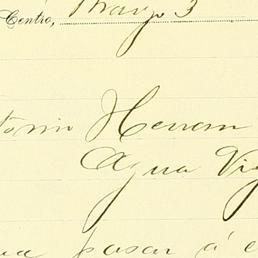 Centro, Mayo 3
tonio Herrera
Agua Vi
ua pasar á e